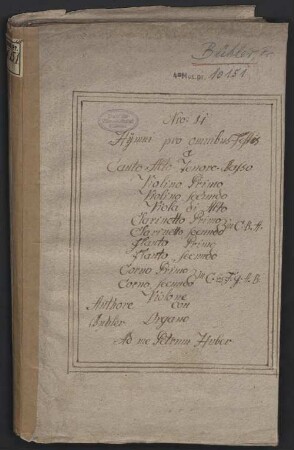 Bühler, Fr.
4° Mus. pr. 10151
Nro: 11
Hÿmni pro omnibus Festis
a
Canto Alto Tenore Basso
Violino Primo
Violino secundo
Viola ò Alto
Clarinetto Primo
Clarinetto secundo in C. B. A.
Flauto Primo
Flauto secundo
Corno Primo
Corno secundo in C.
Violone
Authore con
Bühler Organo
Ad me Petrum Huber